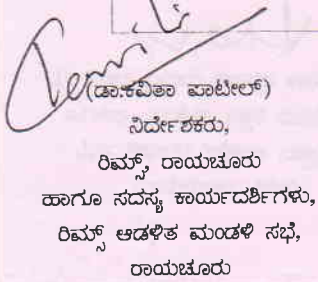 (ಡಾ:ಕವಿತಾ ಪಾಟೀಲ್)
ನಿರ್ದೇಶಕರು,
ರಿಮ್ಸ್, ರಾಯಚೂರು
ಹಾಗೂ ಸದಸ್ಯ ಕಾರ್ಯದರ್ಶಿಗಳು,
ರಿಮ್ಸ್ ಆಡಳಿತ ಮಂಡಳಿ ಸಭೆ,
ರಾಯಚೂರು